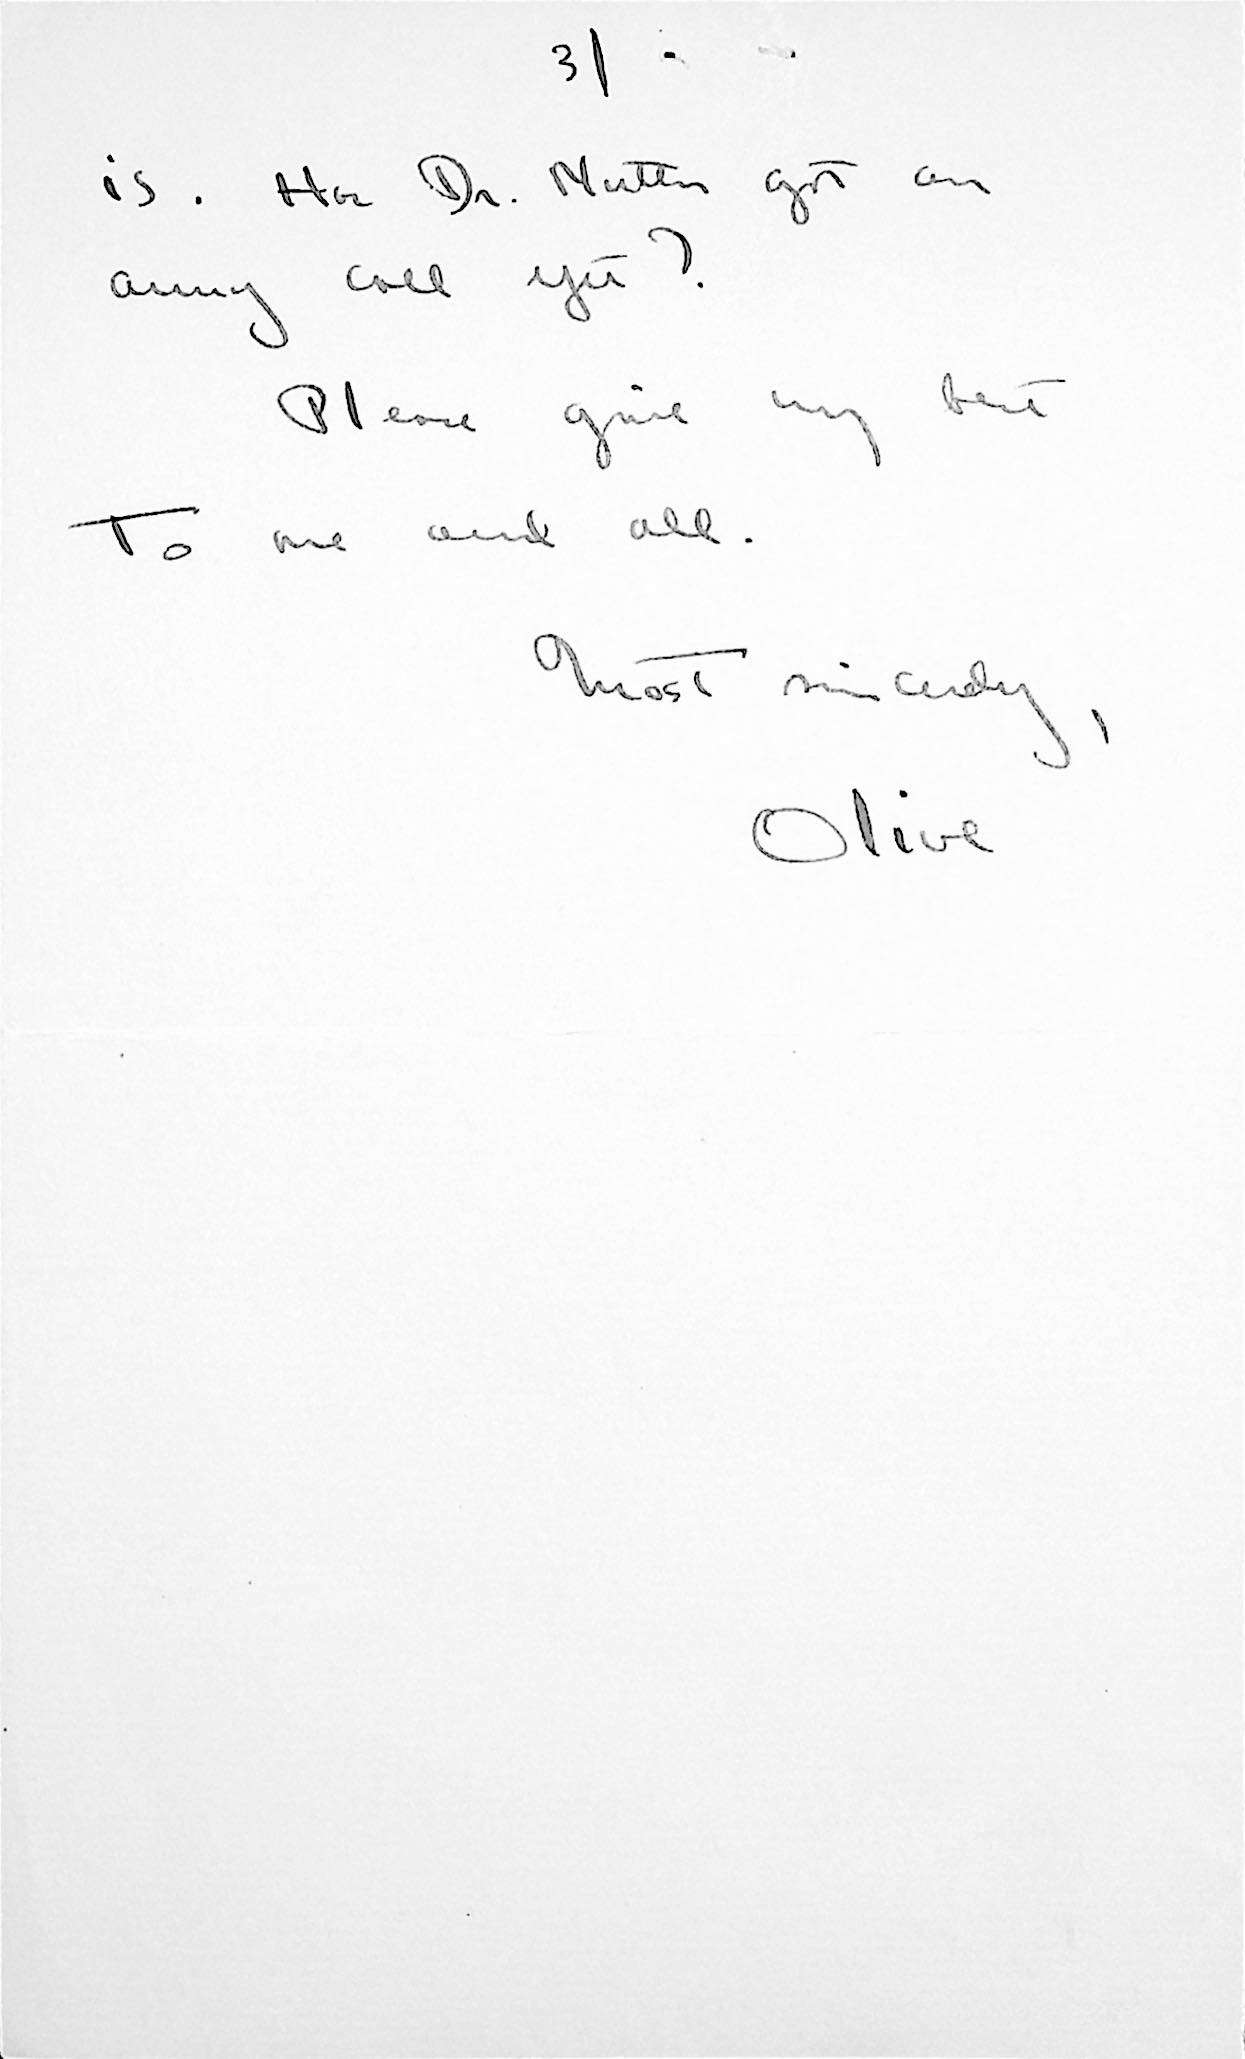 3/
is. Has Dr. got an
army call yet?
Please give my best
To one and all.
Most sincerely,
Olive